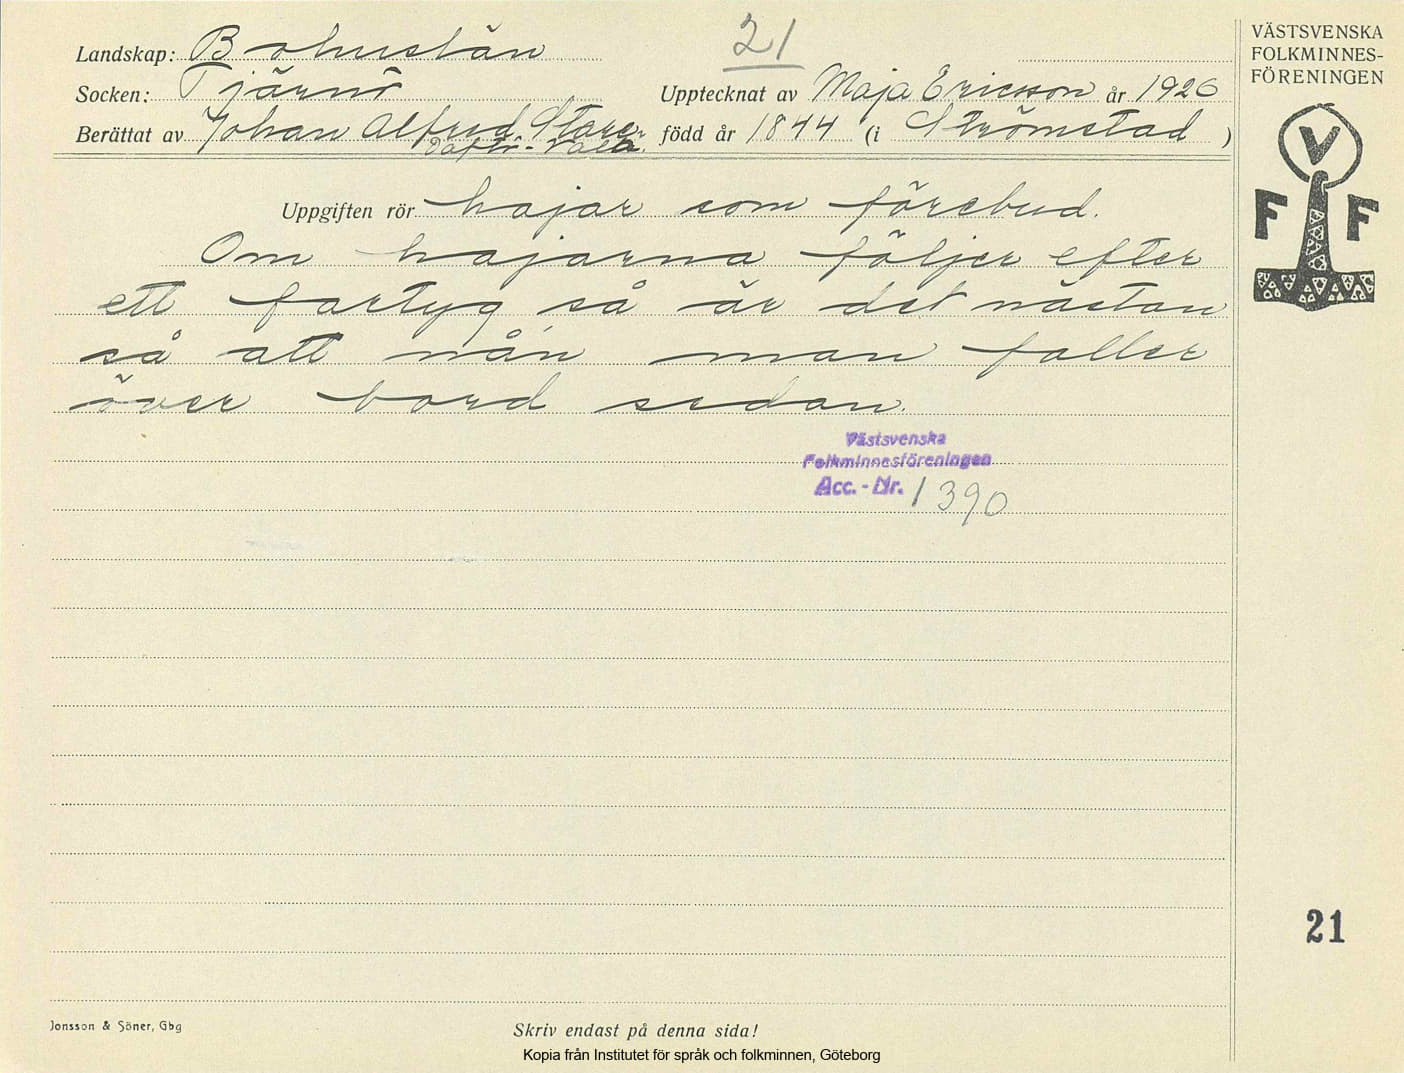 Landskap: Bohuslän
21
VÄSTSVENSKA
FOLKMINNES-
FÖRENINGEN
Socken: Tjärnö
Upptecknat av Maja Ericsson år 1926
Berättat av Johan Alfred
född år 1844 (i Strömstad )
V
F F
Uppgiften rör hajar som förebud.
Om hajarna följer efter
ett fartyg så är det nästan
så att nån man faller
över bord sedan.
Västsvenska
Folkminnesföreningen
Acc. - Nr. 1390
21
Jonsson & Söner, Gbg
Skriv endast på denna sida!
Kopia från Institutet för språk och folkminnen, Göteborg